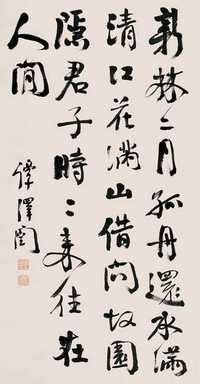 新林二月孤舟還水滿
清江花滿山借問故園
隱君子時〻來往在
人間
譚澤闓